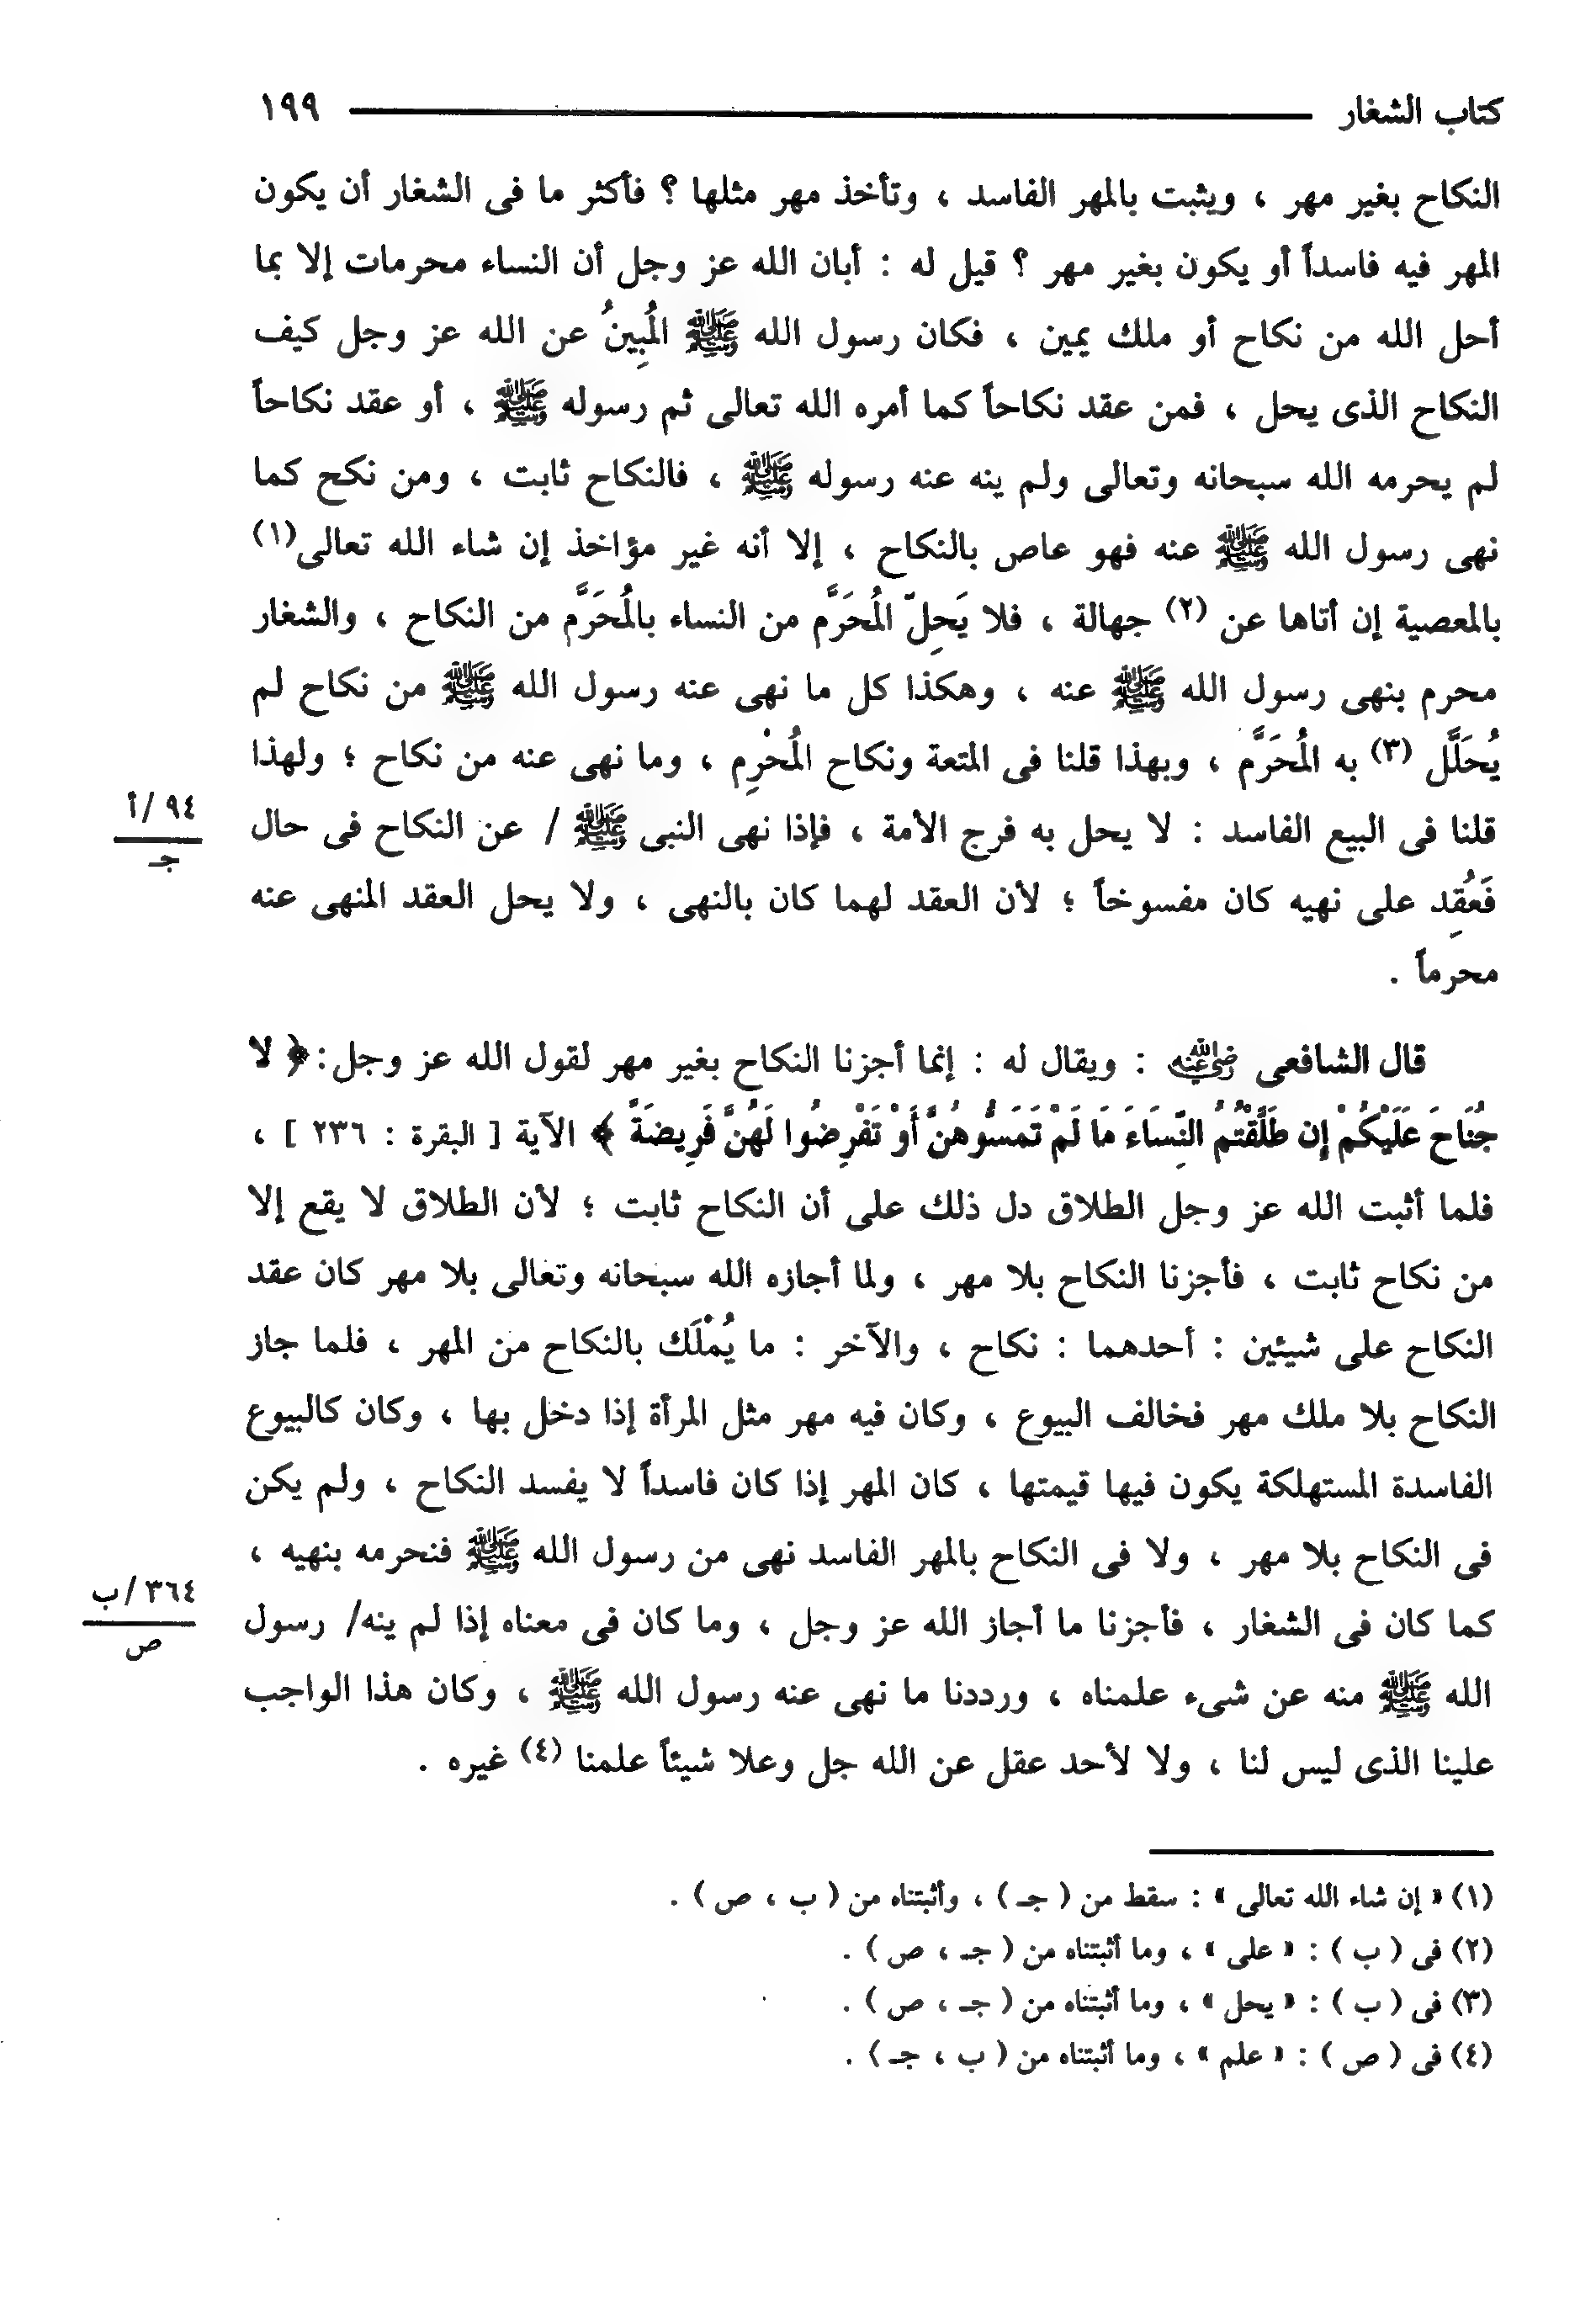 كتاب الشغار ١٩٩
النكاح بغير مهر ، ويثبت بالمهر الفاسد ، وتأخذ مهر مثلها ؟ فأكثر ما فى الشغار أن يكون
المهر فيه فاسداً أو يكون بغير مهر ؟ قيل له : أبان الله عز وجل أن النساء محرمات إلا بما
أحل الله من نكاح أو ملك يمين ، فكان رسول الله ﷺ المُبِينُ عن الله عز وجل كيف
النكاح الذى يحل ، فمن عقد نكاحاً كما أمره الله تعالى ثم رسوله ﷺ ، أو عقد نكاحاً
لم يحرمه الله سبحانه وتعالى ولم ينه عنه رسوله ﷺ ، فالنكاح ثابت ، ومن نكح كما
نهى رسول الله ﷺ عنه فهو عاص بالنكاح ، إلا أنه غير مؤاخذ إن شاء الله تعالى(١)
بالمعصية إن أتاها عن (٢) جهالة ، فلا يَحِلّ المُحَرَّم من النساء بالمُحَرَّم من النكاح ، والشغار
محرم بنهى رسول الله ﷺ عنه ، وهكذا كل ما نهى عنه رسول الله ﷺ من نكاح لم
يُحَلَّل (٣) به المُحَرَّم ، وبهذا قلنا فى المتعة ونكاح المُحْرِم ، وما نهى عنه من نكاح ؛ ولهذا
قلنا فى البيع الفاسد : لا يحل به فرج الأمة ، فإذا نهى النبى ﷺ / عن النكاح فى حال
٩٤ /أ
جـ
فَعُقِد على نهيه كان مفسوخاً ؛ لأن العقد لهما كان بالنهى ، ولا يحل العقد المنهى عنه
محرماً .
قال الشافعى رضي الله عنه : ويقال له : إنما أجزنا النكاح بغير مهر لقول الله عز وجل: ﴿ لا
جُنَاحَ عَلَيْكُمْ إِن طَلَّقْتُمُ النِّسَاءَ مَا لَمْ تَمَسُّوهُنَّ أَوْ تَفْرِضُوا لَهُنَّ فَرِيضَةً ﴾ الآية [ البقرة : ٢٣٦ ] ،
فلما أثبت الله عز وجل الطلاق دل ذلك على أن النكاح ثابت ؛ لأن الطلاق لا يقع إلا
من نكاح ثابت ، فأجزنا النكاح بلا مهر ، ولما أجازه الله سبحانه وتعالى بلا مهر كان عقد
النكاح على شيئين : أحدهما : نكاح ، والآخر : ما يُمْلَك بالنكاح من المهر ، فلما جاز
النكاح بلا ملك مهر فخالف البيوع ، وكان فيه مهر مثل المرأة إذا دخل بها ، وكان كالبيوع
الفاسدة المستهلكة يكون فيها قيمتها ، كان المهر إذا كان فاسداً لا يفسد النكاح ، ولم يكن
فى النكاح بلا مهر ، ولا فى النكاح بالمهر الفاسد نهى من رسول الله ﷺ فنحرمه بنهيه ،
كما كان فى الشغار ، فأجزنا ما أجاز الله عز وجل ، وما كان فى معناه إذا لم ينه/ رسول
٣٦٤ /ب
ص
الله ﷺ منه عن شىء علمناه ، ورددنا ما نهى عنه رسول الله ﷺ ، وكان هذا الواجب
علينا الذى ليس لنا ، ولا لأحد عقل عن الله جل وعلا شيئاً علمنا (٤) غيره .
(١) « إن شاء الله تعالى » : سقط من ( جـ ) ، وأثبتناه من ( ب ، ص ) .
(٢) فى ( ب ) : « على » ، وما أثبتناه من ( جـ ، ص ) .
(٣) فى ( ب ) : « يحل » ، وما أثبتناه من ( جـ ، ص ) .
(٤) فى ( ص ) : « علم » ، وما أثبتناه من ( ب ، جـ ) .